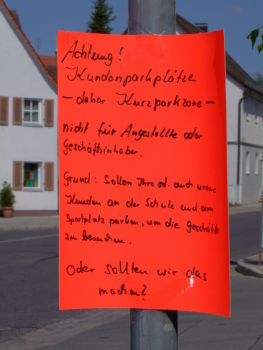 Achtung!
Kundenparkplätze
- daher Kurzparkzone -
nicht für Angestellte oder
Geschäftsinhaber.
Grund: Sollen Ihre od. auch unsere
Kunden an der Schule und am
Sportplatz parken, um die Geschäfte
zu besuchen.
Oder sollten wir das
machen?